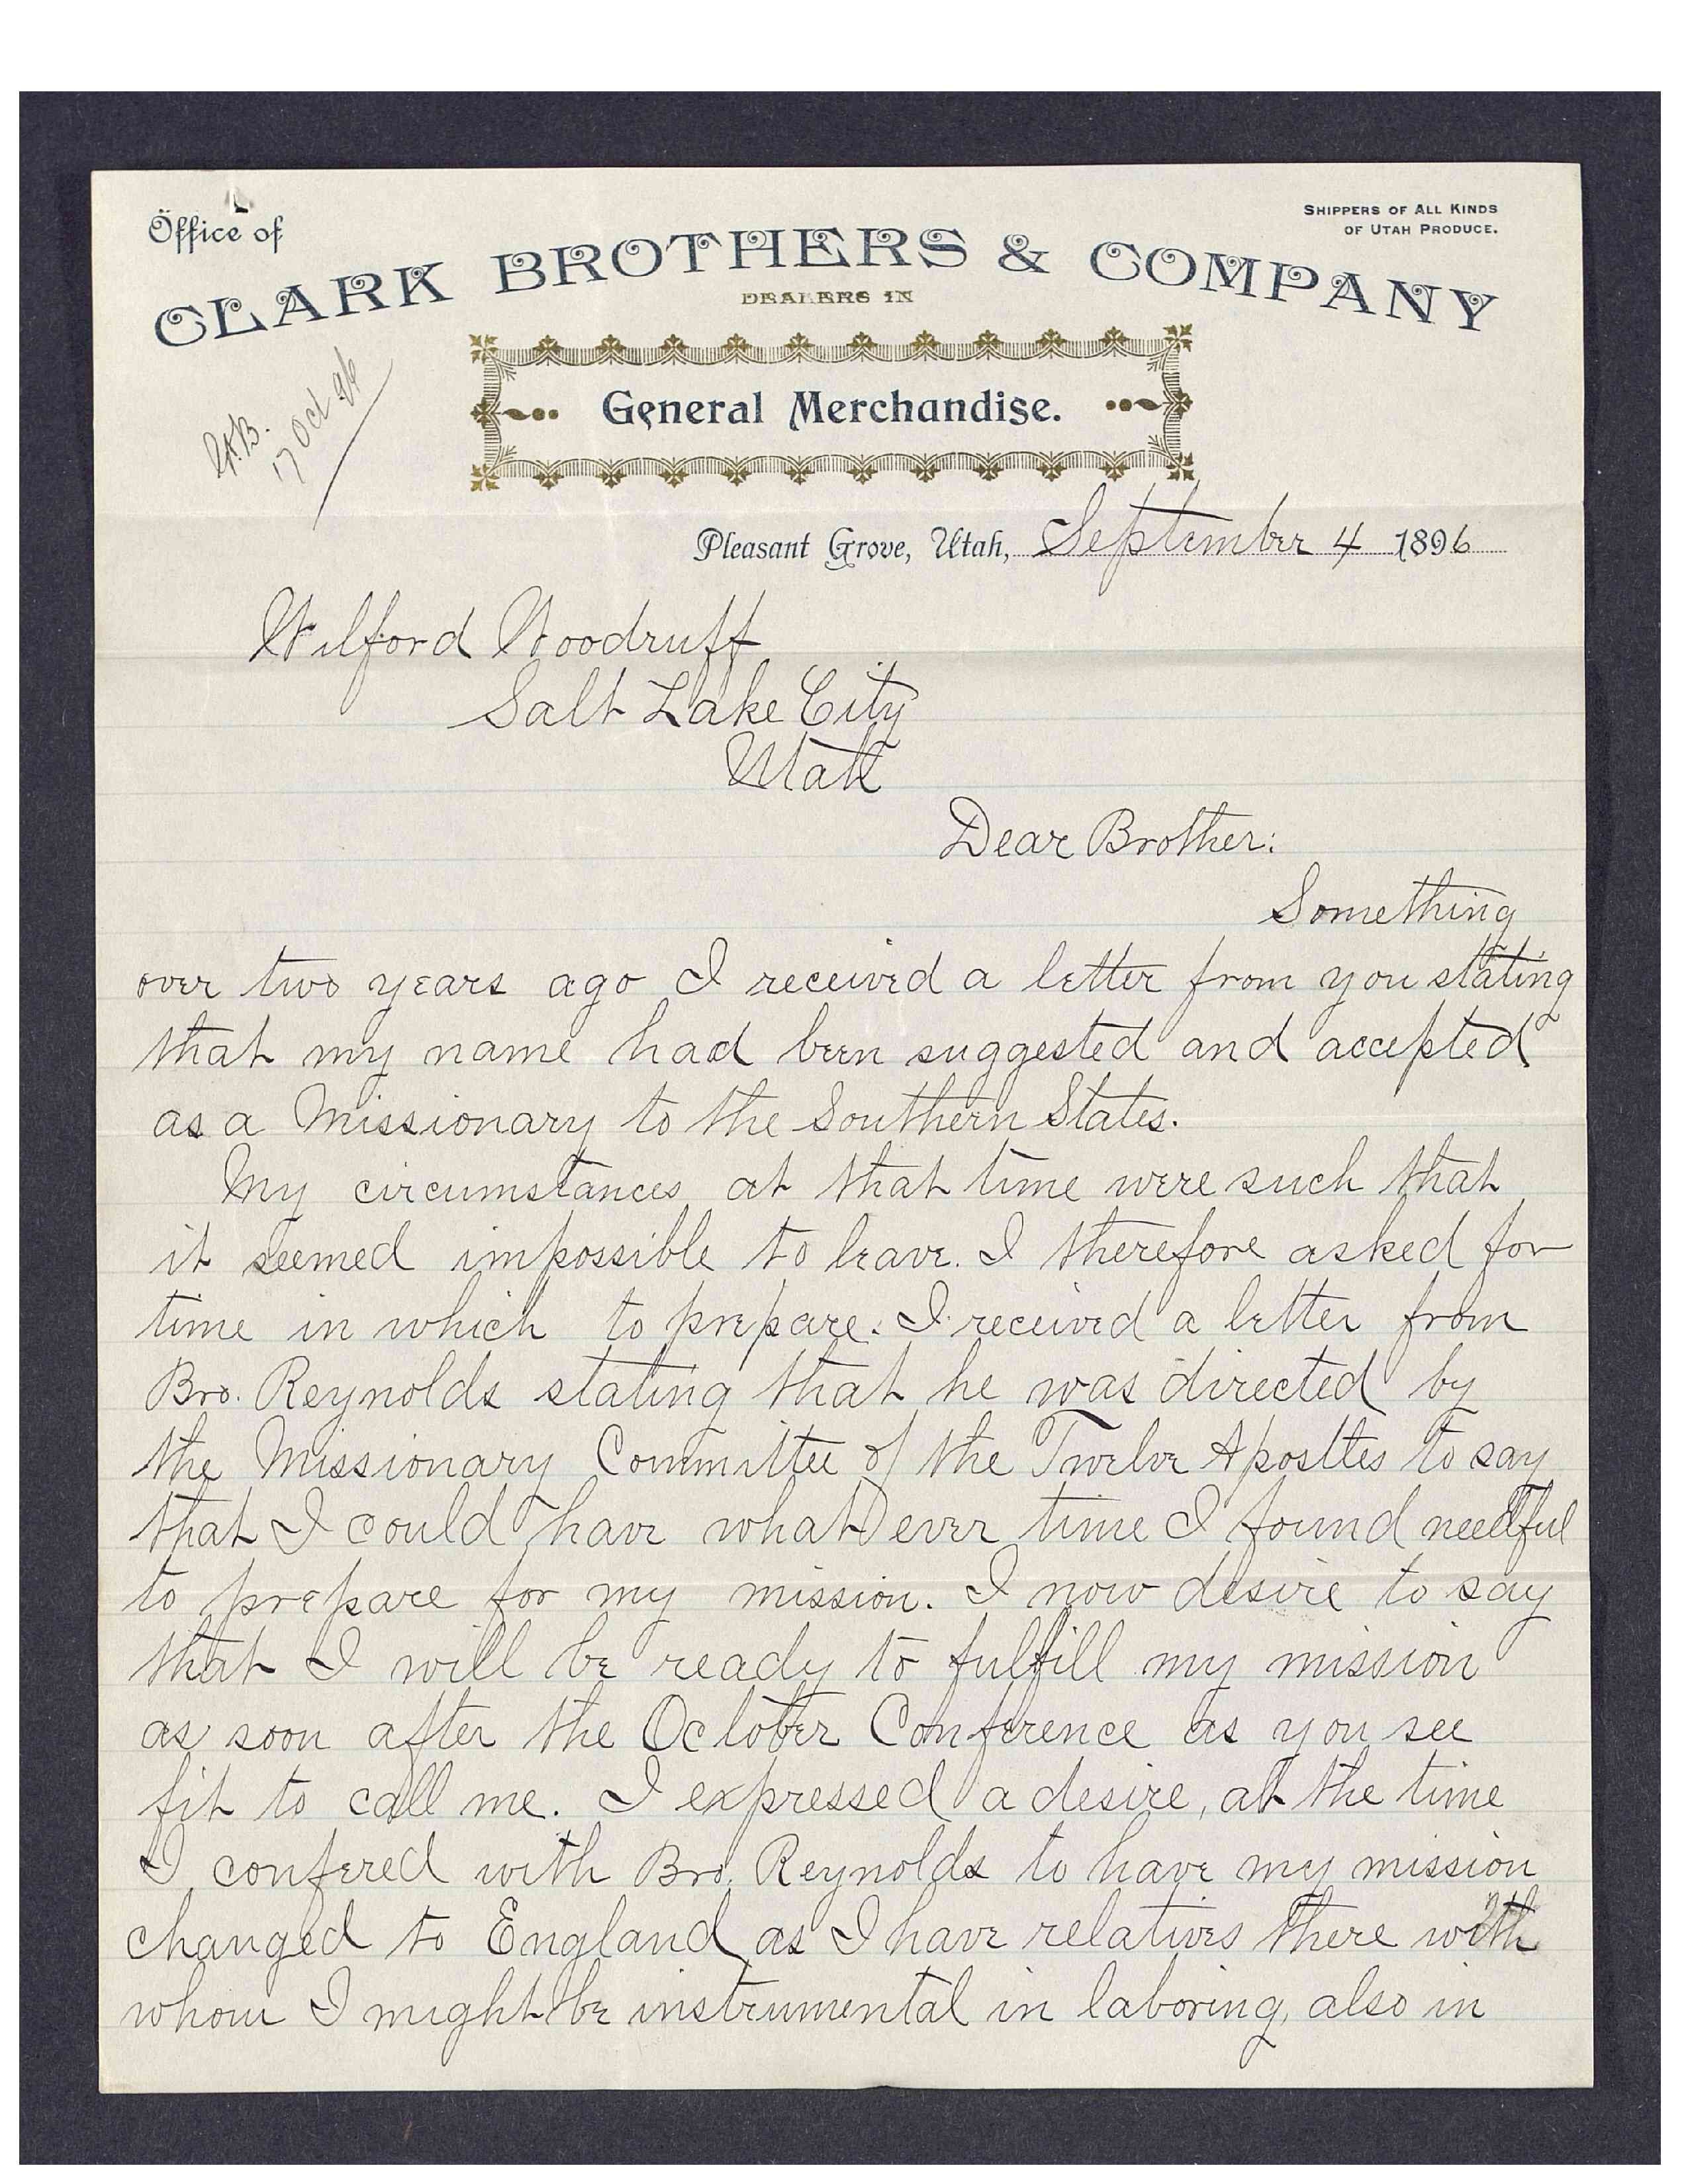 Office of
SHIPPERS OF ALL KINDS
OF UTAH PRODUCE.
CLARK BROTHERS & COMPANY
DEALERS IN
General Merchandise.
17 Oct 96
Pleasant Grove, Utah, September 4 1896
Wilford Woodruff
Salt Lake City
Utah
Dear Brother:
Something
over two years ago I received a letter from you stating
that my name had been suggested and accepted
as a Missionary to the Southern States.
My circumstances at that time were such that
it seemed impossible to leave. I therefore asked for
time in which to prepare. I received a letter from
Bro. Reynolds stating that he was directed by
the Missionary Committee of the Twelve Apostles to say
that I could have what ever time I found needful
to prepare for my mission. I now desire to say
that I will be ready to fulfill my mission
as soon after the October Conference as you see
fit to call me. I expressed a desire, at the time
I confered with Bro. Reynolds to have my mission
changed to England as I have relatives there with
whom I might be instrumental in laboring, also in